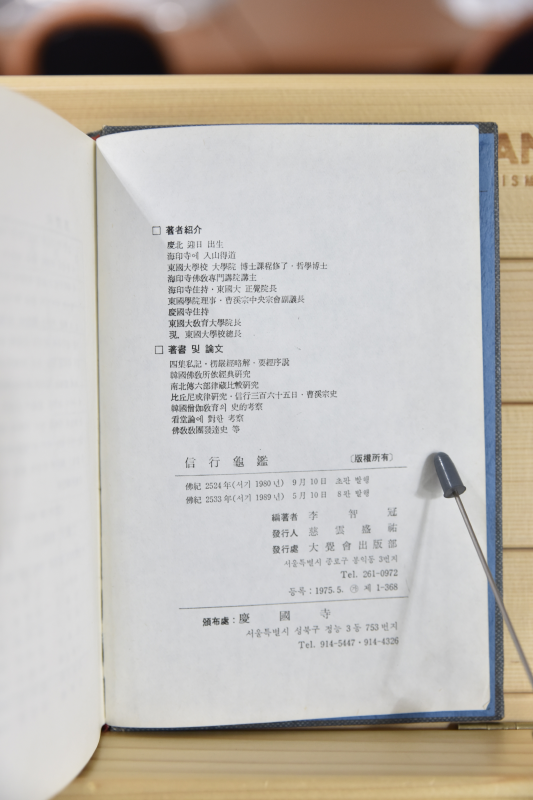 □ 著者紹介
慶北 迎日 出生
海印寺에 入山得道
東國大學校 大學院 博士課程修了·哲學博士
海印寺佛敎專門講院講主
海印寺住持·東國大 正覺院長
東國學院理事·曹溪宗中央宗會副議長
慶國寺住持
東國大敎育大學院長
現, 東國大學校總長
□ 著書 및 論文
四集私記·楞嚴經略解·要經序說
韓國佛敎所依經典硏究
南北傳六部律藏比較硏究
比丘尼戒律硏究·信行三百六十五日·曹溪宗史
韓國僧伽敎育의 史的考察
看堂論에 對한 考察
佛敎敎團發達史 等
信行龜鑑 〔版權所有〕
佛紀 2524年(서기 1980년) 9月 10日 초판 발행
佛紀 2533年(서기 1989년) 5月 10日 8판 발행
編著者 李智冠
發行人 慈雲盛祐
發行處 大覺會出版部
서울특별시 종로구 봉익동 3번지
Tel. 261-0972
등록: 1975.5. 제 1-368
頒布處: 慶國寺
서울특별시 성북구 정능 3동 753번지
Tel. 914-5447·914-4326
AN
ISM